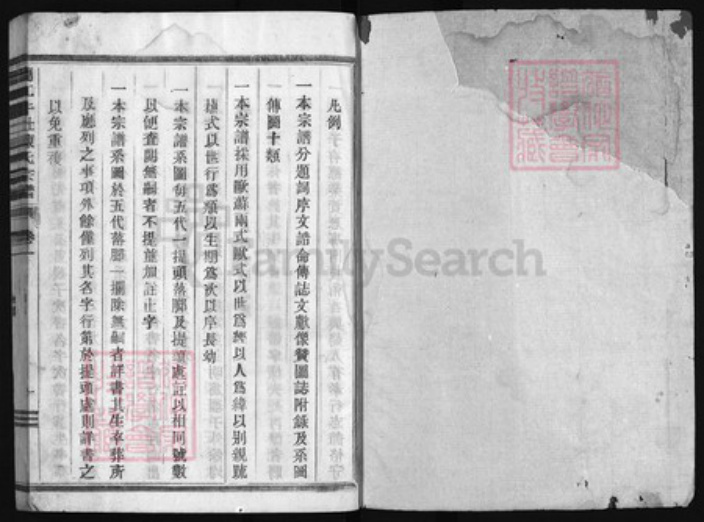 凡例
一本宗譜分題詞序文誥命傳誌文獻像贊圖誌附錄及系圖
傳圖十類
一本宗譜採用歐蘇兩式歐式以世爲經以人爲緯以別親疏
樣式以世行爲順以生期爲次以序長幼
一本宗譜系圖每五代一提頭落腳及提頭處註以相同號數
以便查閱無嗣者不提並加註止字
一本宗譜系圖於五代落腳一攔除無嗣者詳書其生卒葬所
及應列之事項外餘僅列其名字行第於提頭處則詳書之
以免重複
FamilySearch